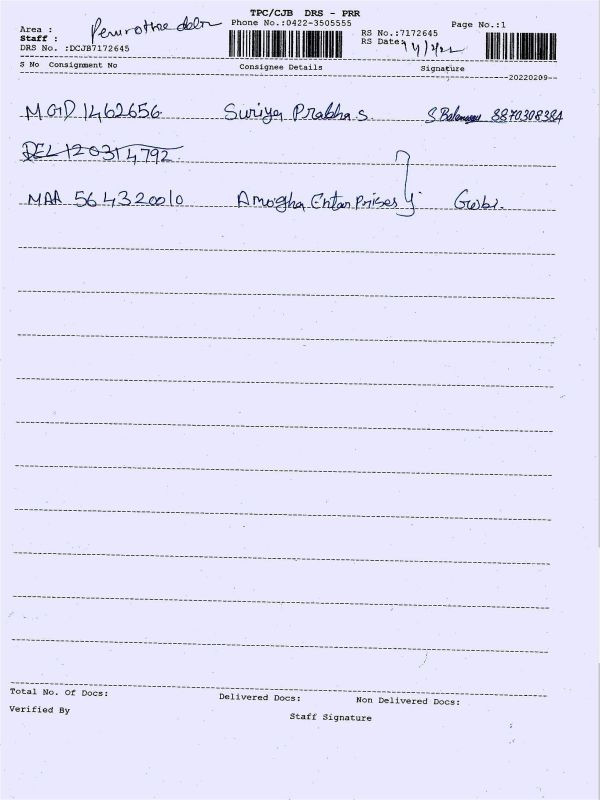 TPC/CJB DRS - PRR
Area :
Phone No.:0422-3505555
Page No.:1
Staff :
RS No.:7172645
DRS No. :DCJB7172645
RS Date:
S No Consignment No Consignee Details Signature
20220209
MGD 1462656 Suriya Prabha S. 8870308384
DEL 120314792
MAA 564320010 Amogha Enterprises
Total No. Of Docs: Delivered Docs: Non Delivered Docs:
Verified By
Staff Signature